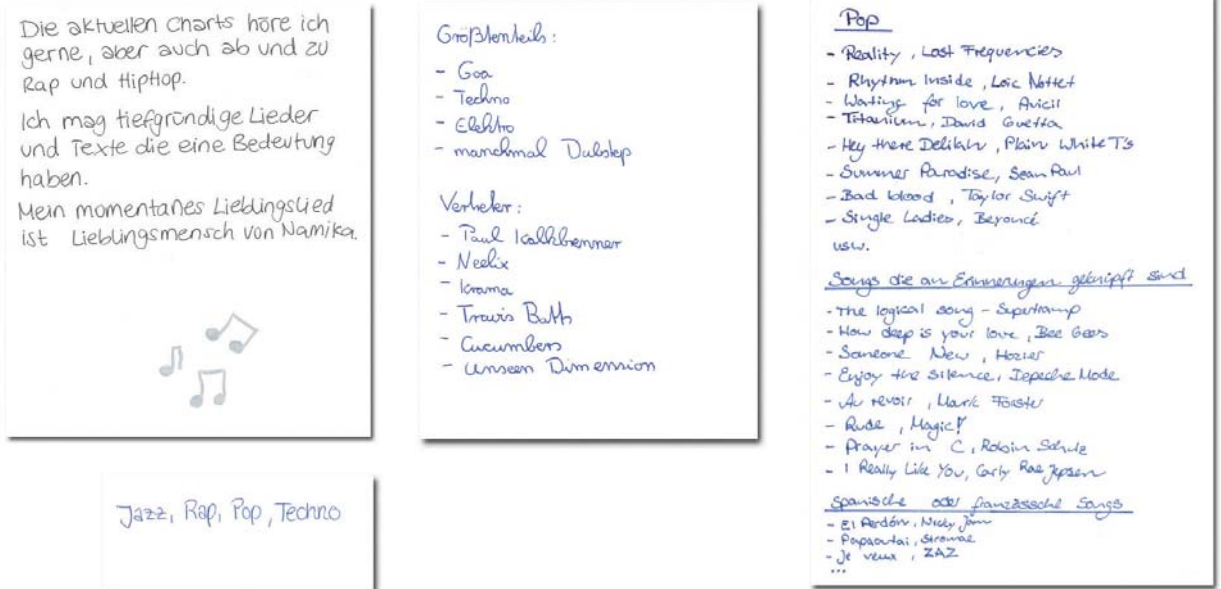 Die aktuellen Charts höre ich
gerne, aber auch ab und zu
Rap und HipHop.
Ich mag tiefgründige Lieder
und Texte die eine Bedeutung
haben.
Mein momentanes Lieblingslied
ist Lieblingsmensch von Namika.
Jazz, Rap, Pop, Techno
Größtenteils:
- Goa
- Techno
- Elektro
- manchmal Dubstep
Vertreter:
- Paul Kalkbrenner
- Neelix
- Krama
- Travis
- Cucumbers
- Unseen Dimension
Pop
- Reality, Lost Frequencies
- Rhythm Inside, Loic Nottet
- Waiting for love, Avicii
- Titanium, David Guetta
- Hey there Delilah, Plain White T's
- Summer Paradise, Sean Paul
- Bad blood, Taylor Swift
- Single Ladies, Beyoncé
usw.
Songs die an Erinnerungen geknüpft sind
- The logical song - Supertramp
- How deep is your love, Bee Gees
- Someone New, Hozier
- Enjoy the silence, Depeche Mode
- Au revoir, Mark Forster
- Rude, Magic!
- Prayer in C, Robin Schulz
- I Really Like You, Carly Rae Jepsen
Spanische oder französische Songs
- El Perdón, Nicky Jam
- Papaoutai, Stromae
- Je veux, ZAZ
...